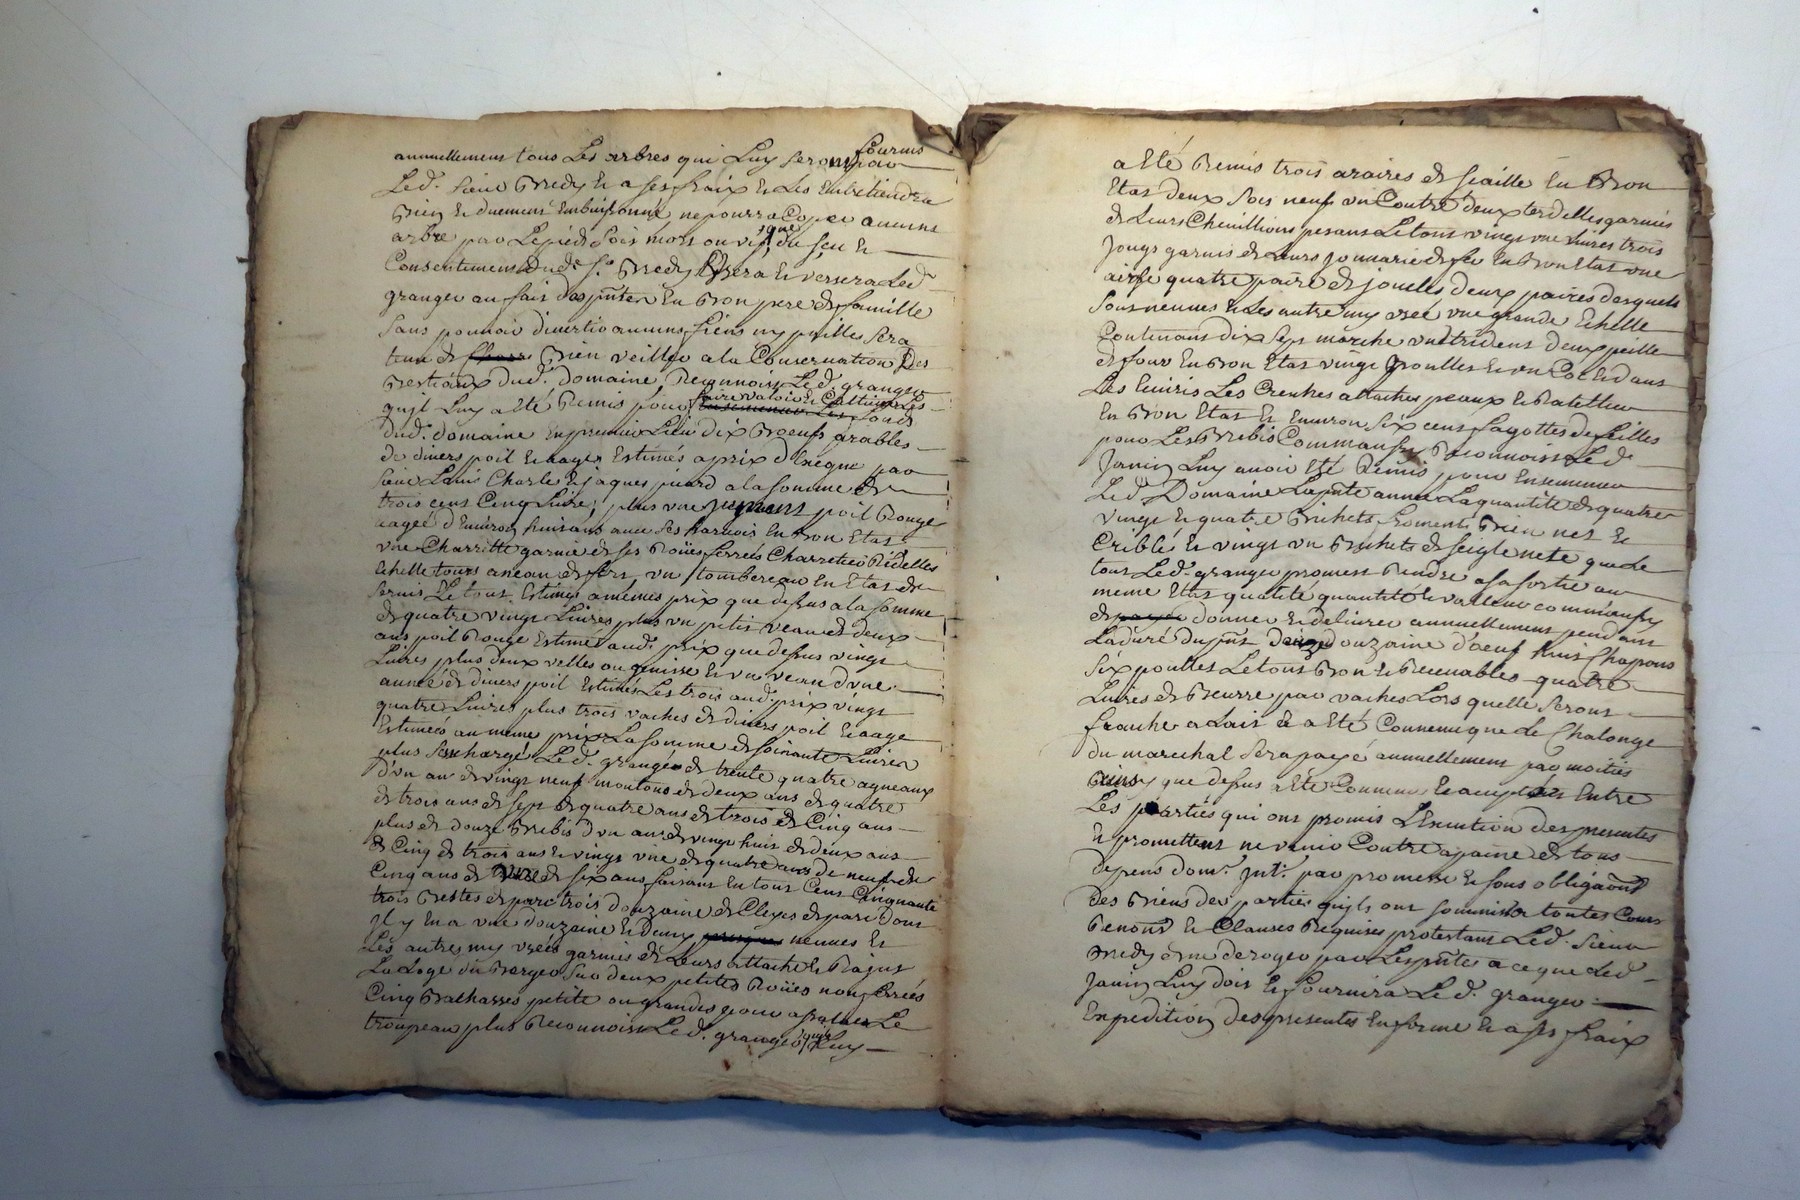 annuellement tous Les arbres qui Luy seront fournis par
Led. sieur Bredy et a ses fraix et Les Entretiendra
Bien et duement Enbuissonné ne pourra Coper aucuns
arbre par Le pied sois mort ou vif que du sçu et
Consentement Dud. Sr. Bredy Usera et versera Led.
granger au fait des pntes En Bon pere de famille
sans pouvoir divertir aucuns fiens ny pailles sera
tenu de Bien veiller a la Conservation Des
Bestiaux dud. domaine Reconnoist Led. granger
qu'il Luy a Eté Remis pour faire valoir et Cultiver Les fonds
dud. domaine En premier Lieu dix Boeufs arables
de divers poil et aages Estimés a prix d'
sieur Louis Charle et jaques picard a la somme de
trois cens Cinq Livre; plus une jument poil Rouge
aagée d'Environ huit ans avec ses harnois En Bon Etat
une Charrette garnie de ses Roües ferrées Ridelles
Echelle tours anneau de fers un tombereau En Etat de
servir Le tout Estimés a mêmes prix que dessus a la somme
de quatre vingt Livres plus un petit veau de deux
ans poil Rouge Estimé aud. prix que dessus vingt
Livres plus deux velles ou genisse et un veau d'une
année de divers poil Estimés Les trois aud. prix vingt
quatre Livres plus trois vaches de divers poil et aage
Estimées au meme prix La somme de soixante Livres
plus se charge Led. granger de trente quatre agneaux
d'un an de vingt neuf moutons de deux ans de quatre
de trois ans de sept de quatre ans de trois de Cinq ans
plus de douze Brebis d'un an de vingt huit de deux ans
de Cinq de trois ans et vingt une de quatre ans de neuf de
Cinq ans de de six ans faisant En tout Cent Cinquante
trois Bestes de parc trois douzaine de Cleyes de parc dont
Il y En a une douzaine et demy neuves et
Les autres my usées garnies de Leurs attache et
La Loge du Berger sur deux petites Roües non ferrées
Cinq petite ou grandes pour
troupeau plus Reconnoist Led. granger que Luy
a Eté Remis trois araires de En Bon
Etat deux socs neuf un Coutre deux garnies
de Leurs Chevillions pesant Le tout vingt une Livres trois
Jougs garnis de Leurs de fer En Bon Etat une
quatre paire de jouelles deux paires desquels
sont neuves et Les autre my usée une grande Echelle
Contenant dix sept marche un trident deux
de four En Bon Etat vingt et un et dans
Les Ecuries Les Creches attaches et Ratellier
En Bon Etat et Environ six cens fagottes de feilles
pour Les Brebis Comm'aussy Reconnoist Led.
Janin Luy avoir Eté Remis pour Ensemencer
Led. Domaine La pnte année La quantité de quatre
vingt et quatre Bichets froment Bien net et
Criblé et vingt un Bichets de seigle nete que Le
tout Led. granger promest Rendre a sa sortie au
meme Etat qualité quantité et valleur comm'aussy
de donner et delivrer annuellement pendant
La duré du pnt douzaine d'oeuf huit Chapons
six poulles Le tout Bon et Recevables quatre
Livres de Beurre par vaches Lors quelle seront
franche a Lait et a Eté Convenu que Le Chalonge
du marechal sera payé annuellement par moitiés
ainsy que dessus a Eté Convenu et accepté Entre
Les parties qui ont promis L'Execution des presentes
et promettent ne venir Contre a paine de tous
depens dom. jnt. par promesse et sous obligaõns
des Biens des parties qu'ils ont soummis a toutes Cours
Renonõns et Clauses Requises protestant Led. sieur
Bredy de ne deroger par Les pntes a ce que Led.
Janin Luy doit et fournira Led. granger
Expedition des presentes En forme et a ses fraix